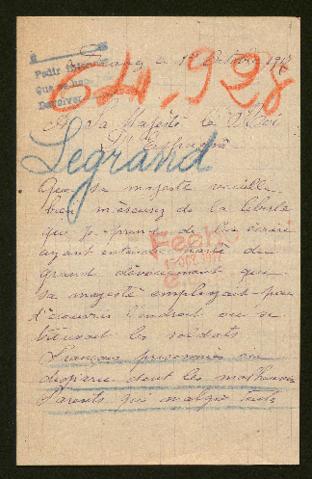 le 1er Octobre 1917
Pedir
que se
Devolver
64,928
A Sa Majesté le Roi
d'Espagne
Legrand
Que sa majesté veuille
bien m'excusez de la liberté
que je prends de lui écrire
ayant entendu parlé du
grand dévouement que
sa majesté employait pour
découvrir l'endroit ou se
trouvait les soldats
Français prisonnier ou
disparue dont les malheureux
Parents qui malgré tout